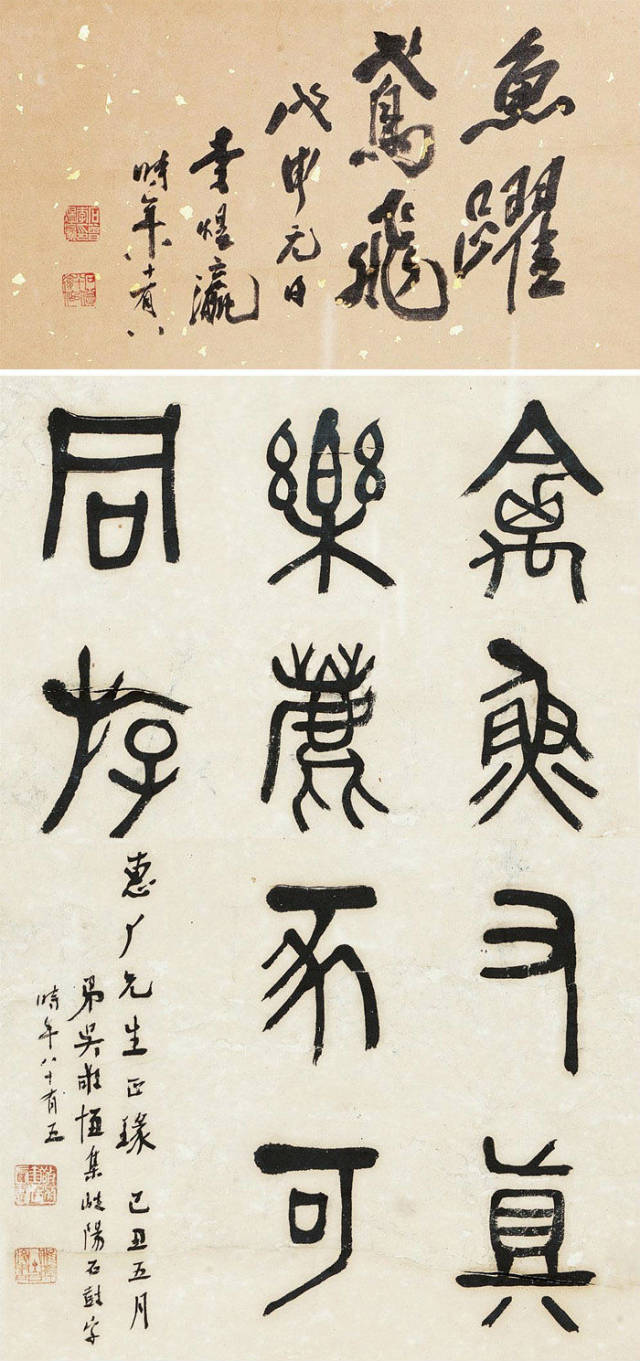 魚躍
鳶飛
戊申元日
李煜瀛
時年八十有八
禽魚又真
樂麋豕可
同斿
惠人先生正瑑 己丑五月
弟吳敬恒集岐陽石鼓字
時年八十有五